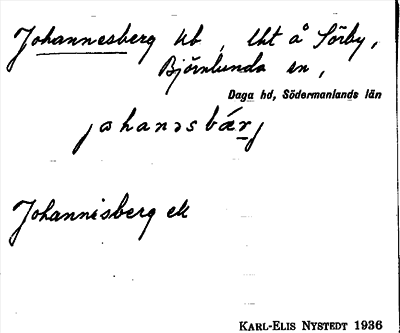 Johannesberg hb, lht å Sörby,
Björnlunda sn,
Daga hd, Södermanlands län
johanəsbærj
Johannisberg ek
KARL-ELIS NYSTEDT 1936